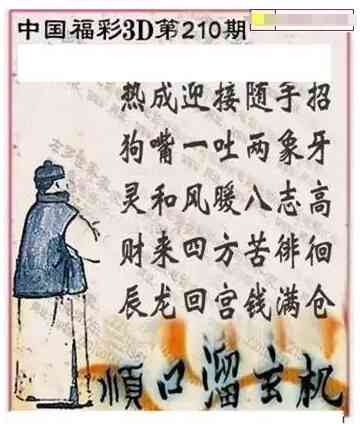 中国福彩3D第210期
热成迎接随手招
狗嘴一吐两象牙
灵和风暖八志高
财来四方苦徘徊
辰龙回宫钱满仓
順口溜玄机